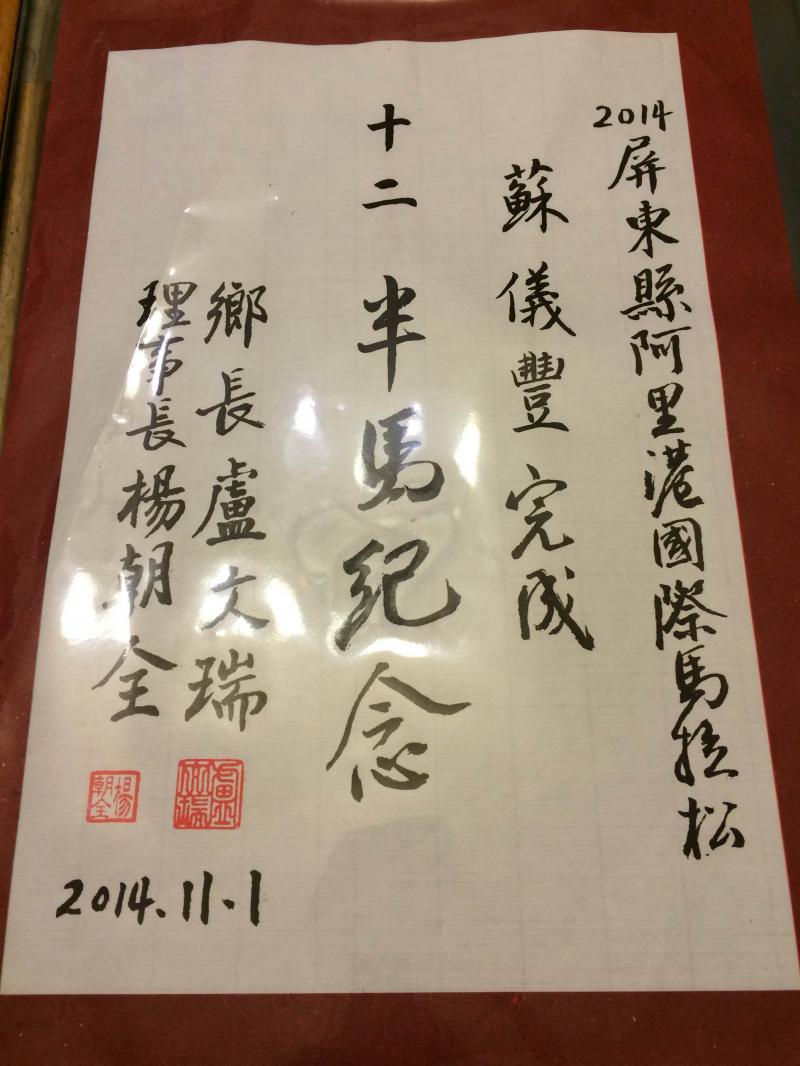 2014屏東縣阿里港國際馬拉松
蘇儀豐完成
十二半馬紀念
鄉長盧文瑞
理事長楊朝全
盧文瑞
楊朝全
2014.11.1